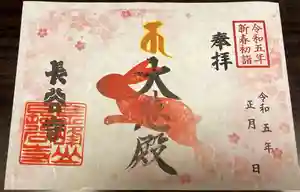 令和五年
新春初詣
奉拝
大黒殿
長谷寺
令和五年
正月 日